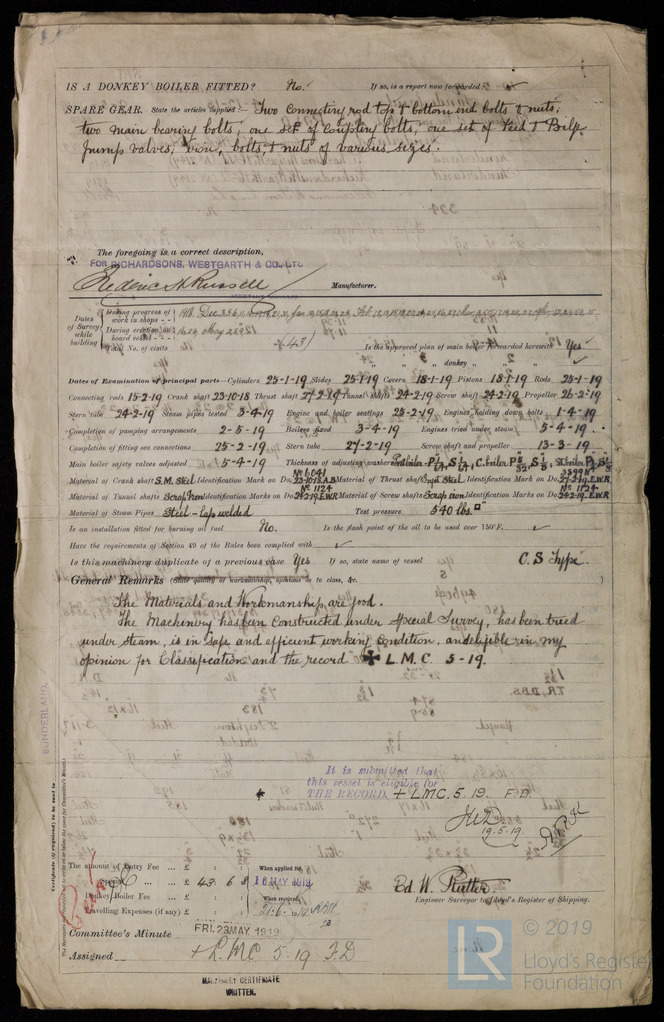 IS A DONKEY BOILER FITTED? No. If so, is a report now forwarded?
SPARE GEAR. State the articles supplied:— Two Connecting rod top & bottom end bolts & nuts,
two main bearing bolts, one set of Coupling bolts, one set of Feed & Bilge
pump valves, iron, bolts, & nuts of various sizes.
The foregoing is a correct description,
FOR RICHARDSONS, WESTGARTH & CO. LTD
Frederic H Russell Manufacturer.
Dates of Survey while building
During progress of work in shops - - 1918. Dec
During erection on board vessel - - - May
Total No. of visits 43
Is the approved plan of main boiler forwarded herewith Yes
" " " donkey " "
Dates of Examination of principal parts—Cylinders 25-1-19 Slides 25-1-19 Covers 18-1-19 Pistons 18-1-19 Rods 25-1-19
Connecting rods 15-2-19 Crank shaft 23-10-18 Thrust shaft 27-2-19 Tunnel shafts 24-2-19 Screw shaft 24-2-19 Propeller 26-2-19
Stern tube 24-2-19 Steam pipes tested 3-4-19 Engine and boiler seatings 25-2-19 Engines holding down bolts 1-4-19
Completion of pumping arrangements 2-5-19 Boilers fixed 3-4-19 Engines tried under steam 5-4-19
Completion of fitting sea connections 25-2-19 Stern tube 27-2-19 Screw shaft and propeller 13-3-19
Main boiler safety valves adjusted 5-4-19 Thickness of adjusting washers
Material of Crank shaft S.M. Steel Identification Mark on Do. No 6041 23-10-18.A.B Material of Thrust shaft Ingot Steel Identification Mark on Do. 3599N 27-2-19 E.W.R
Material of Tunnel shafts Scrap Iron Identification Marks on Do. No 1124 24-2-19.E.W.R Material of Screw shafts Scrap iron Identification Marks on Do. No 1124 24-2-19.E.W.R
Material of Steam Pipes Steel - Lap welded Test pressure 540 lbs.
Is an installation fitted for burning oil fuel No. Is the flash point of the oil to be used over 150°F. ✓
Have the requirements of Section 49 of the Rules been complied with ✓
Is this machinery duplicate of a previous case Yes If so, state name of vessel C.S Type.
General Remarks (State quality of workmanship, opinions as to class, &c.
The Materials and Workmanship are good.
The Machinery has been Constructed under Special Survey, has been tried
under steam, is in safe and efficient working condition, and eligible in my
opinion for Classification and the record ✠ L.M.C. 5-19.
SUNDERLAND.
Certificate (if required) to be sent to
It is submitted that
this vessel is eligible for
THE RECORD. + LMC. 5. 19. F.D.
19.5.19.
The amount of Entry Fee ... £ : :
Special ... ... £ 43 : 6 :
Donkey Boiler Fee ... £ : :
Travelling Expenses (if any) £ : :
When applied for,
16 MAY 1919
When received,
Ed W. Rutter.
Engineer Surveyor to Lloyd's Register of Shipping.
Committee's Minute FRI. 23 MAY 1919
Assigned + L.M.C. 5.19 F.D
MACHINERY CERTIFICATE
WRITTEN.
© 2019
LR
Lloyd's Register
Foundation